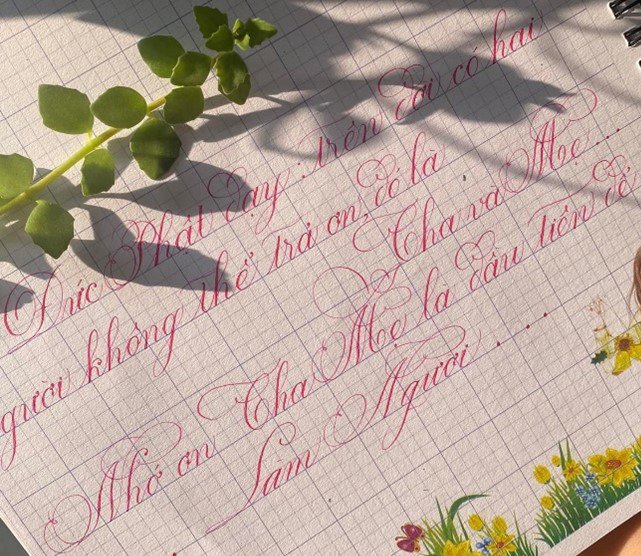 Đức Phật dạy: trên đời có hai
người không thể trả ơn, đó là
Cha và Mẹ...
Nhớ ơn Cha Mẹ là đầu tiên để
làm Người....